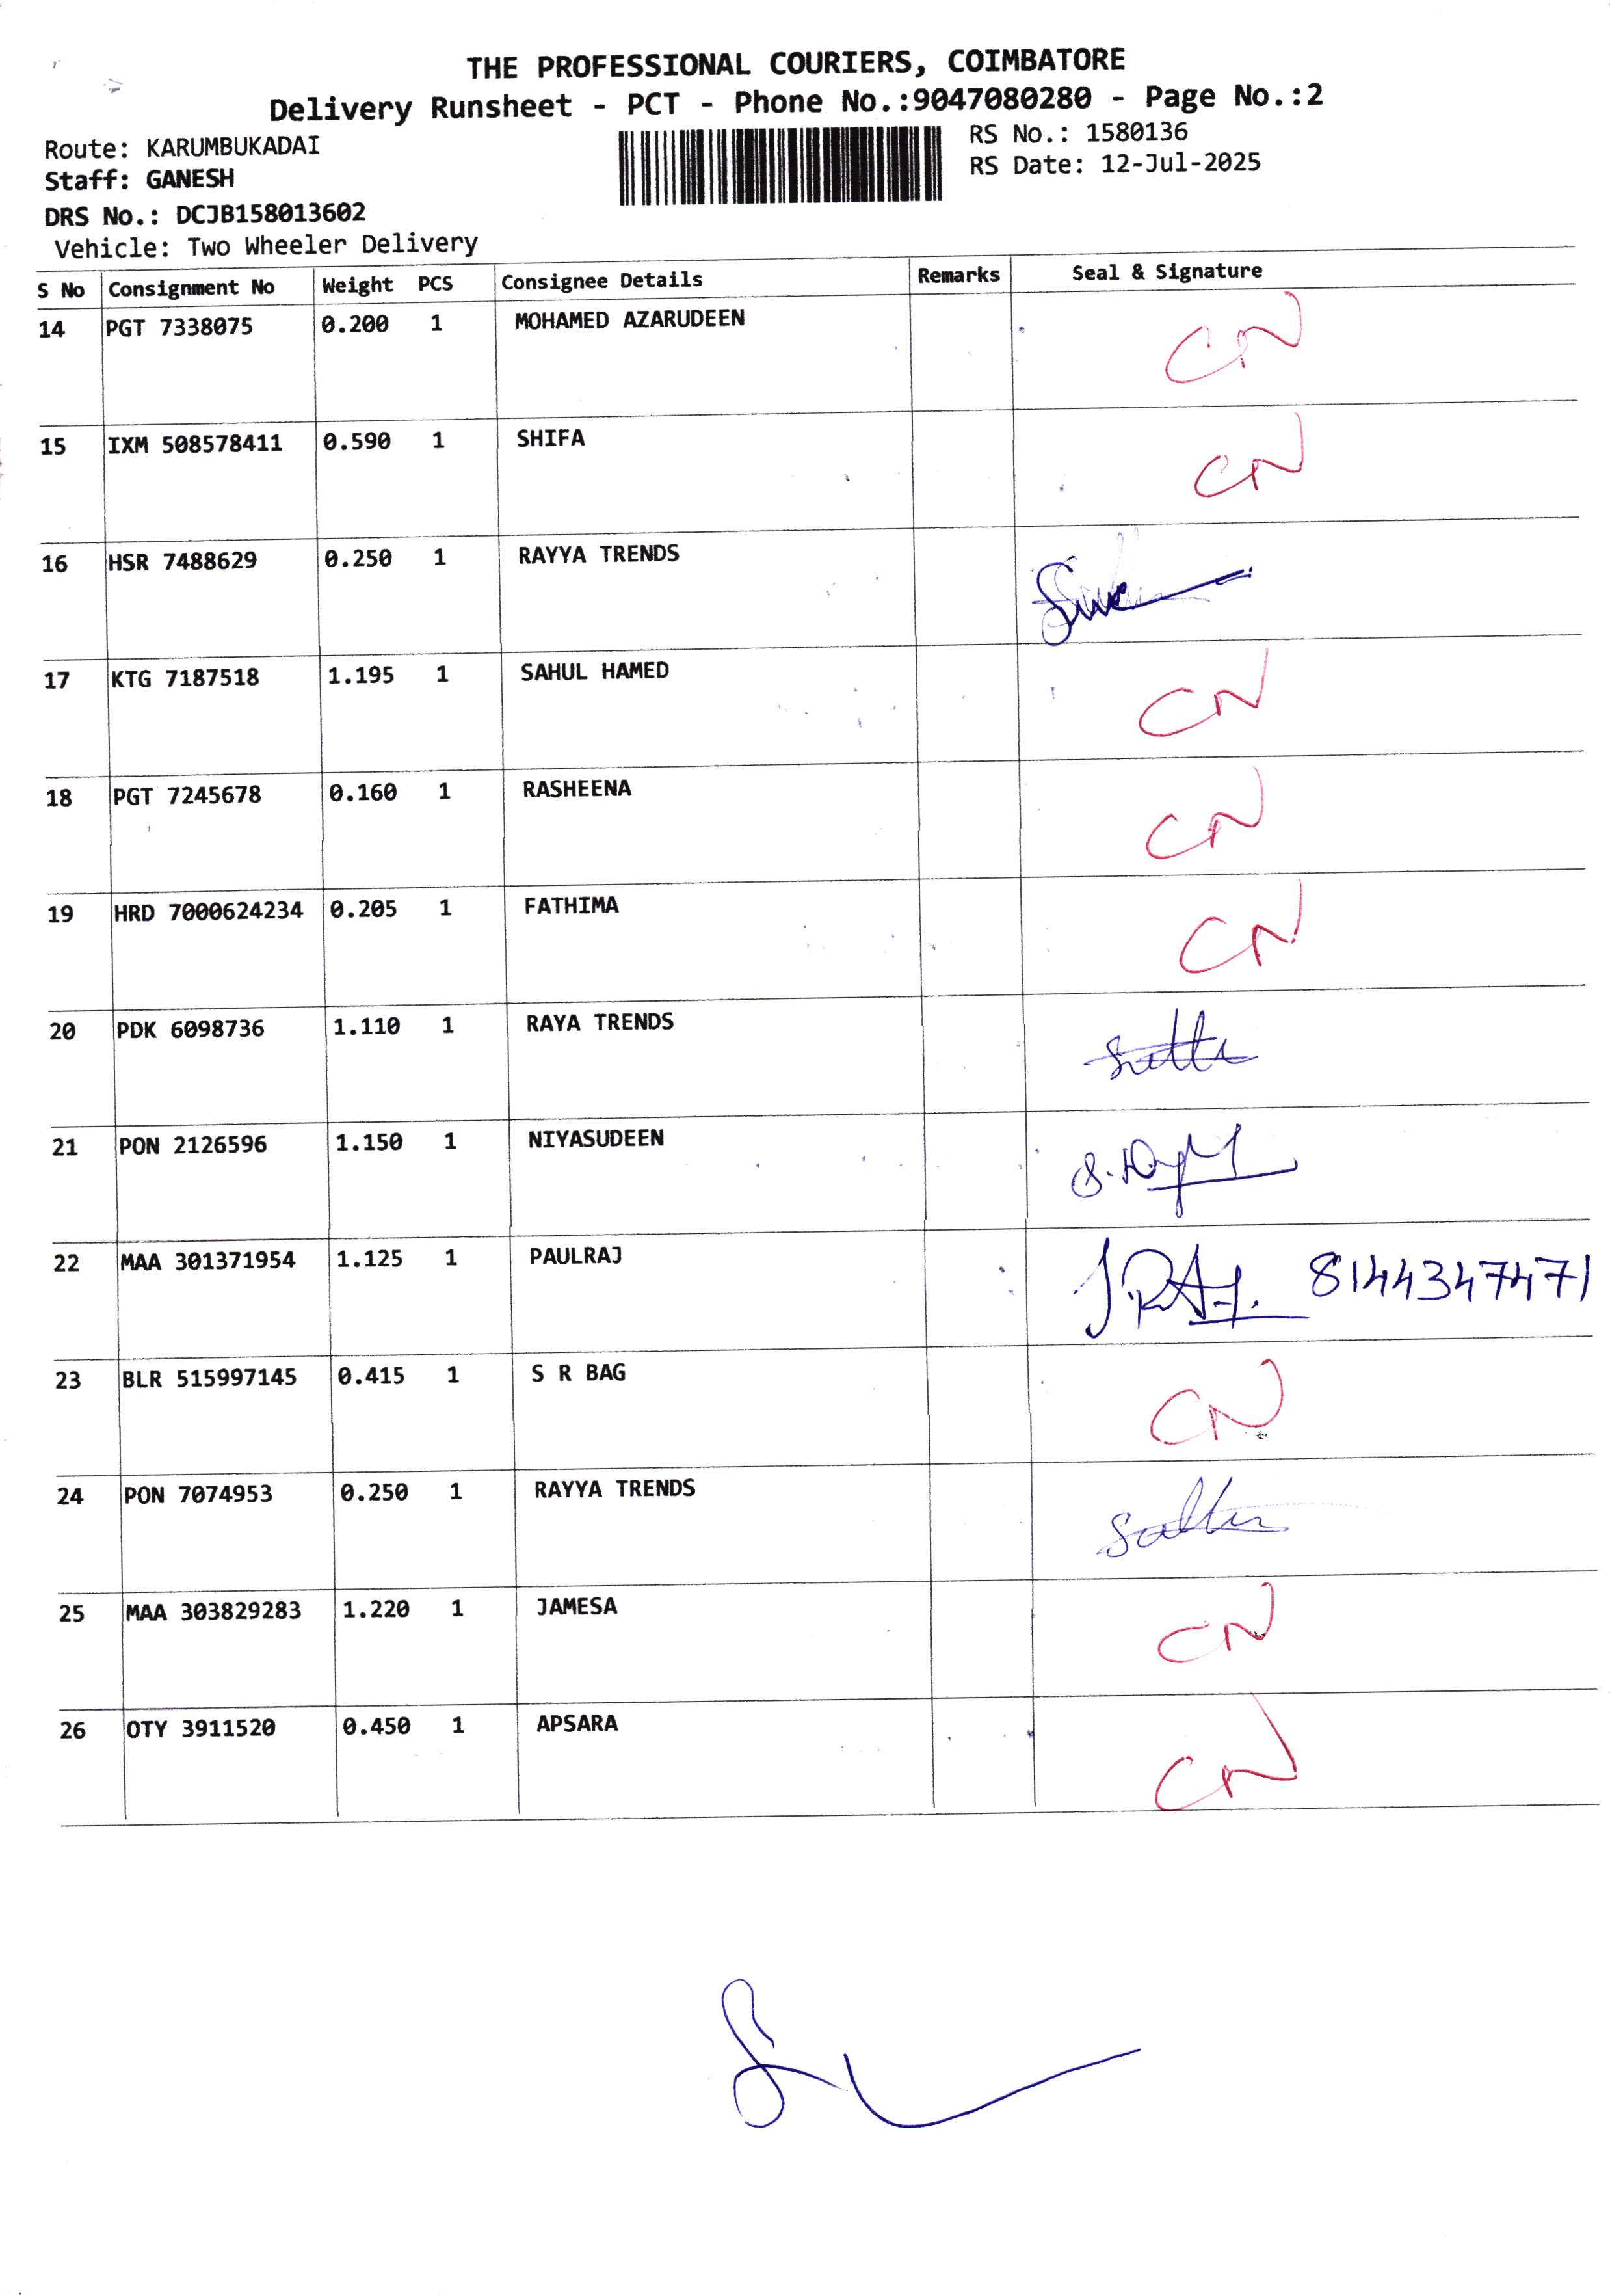 THE PROFESSIONAL COURIERS, COIMBATORE
Delivery Runsheet - PCT - Phone No.:9047080280 - Page No.:2
Route: KARUMBUKADAI
RS No.: 1580136
Staff: GANESH
RS Date: 12-Jul-2025
DRS No.: DCJB158013602
Vehicle: Two Wheeler Delivery
S No Consignment No Weight PCS Consignee Details Remarks Seal & Signature
14 PGT 7338075 0.200 1 MOHAMED AZARUDEEN CN
15 IXM 508578411 0.590 1 SHIFA CN
16 HSR 7488629 0.250 1 RAYYA TRENDS
17 KTG 7187518 1.195 1 SAHUL HAMED CN
18 PGT 7245678 0.160 1 RASHEENA CN
19 HRD 7000624234 0.205 1 FATHIMA CN
20 PDK 6098736 1.110 1 RAYA TRENDS
21 PON 2126596 1.150 1 NIYASUDEEN
22 MAA 301371954 1.125 1 PAULRAJ 8144347471
23 BLR 515997145 0.415 1 S R BAG CN
24 PON 7074953 0.250 1 RAYYA TRENDS
25 MAA 303829283 1.220 1 JAMESA CN
26 OTY 3911520 0.450 1 APSARA CN